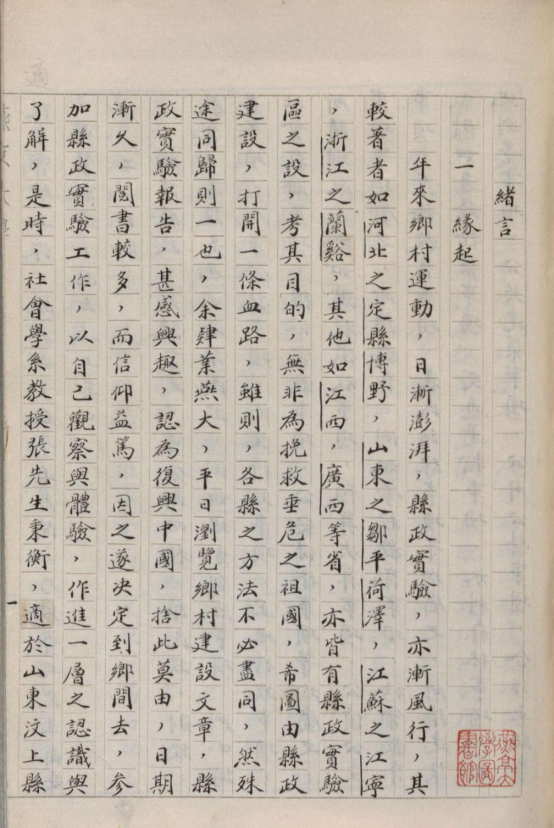 緒言
一 緣起
年來鄉村運動，日漸澎湃，縣政實驗，亦漸風行，其
較著者如河北之定縣博野，山東之鄒平荷澤，江蘇之江寧
，浙江之蘭谿，其他如江西，廣西等省，亦皆有縣政實驗
區之設，考其目的，無非為挽救垂危之祖國，希圖由縣政
建設，打開一條血路，雖則，各縣之方法不必盡同，然殊
途同歸則一也，余肄業燕大，平日瀏覽鄉村建設文章，縣
政實驗報告，甚感興趣，認為復興中國，捨此莫由，日期
漸久，閱書較多，而信仰益篤，因之遂決定到鄉間去，參
加縣政實驗工作，以自己觀察與體驗，作進一層之認識與
了解，是時，社會學系教授張先生秉衡，適於山東汶上縣
燕京大學圖書館